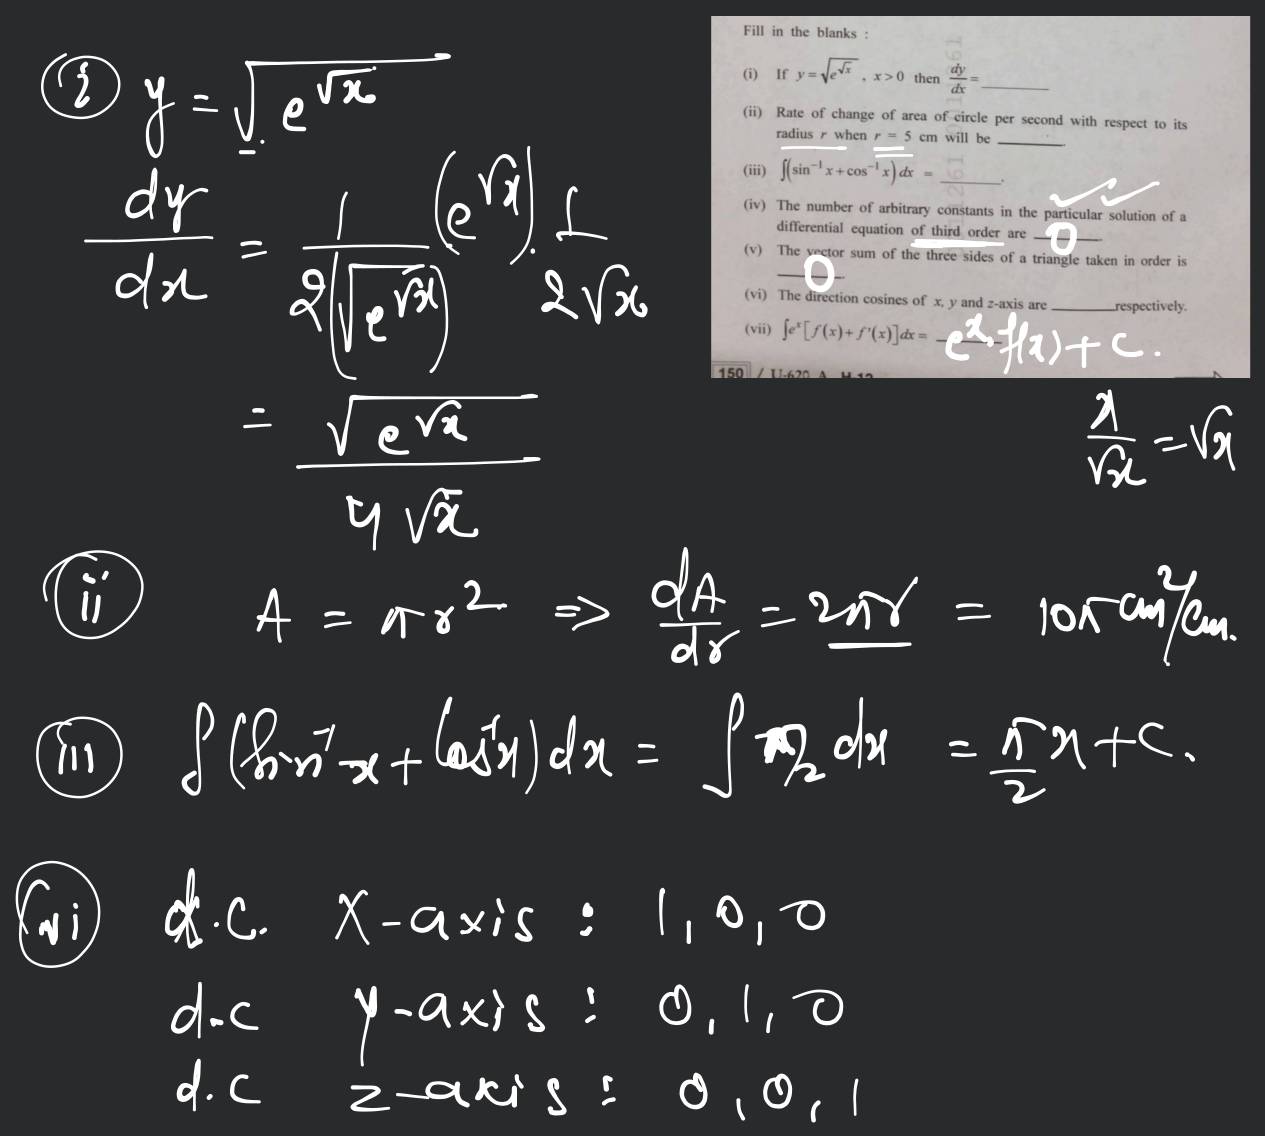 Fill in the blanks :
(i) If y = √(e^√x) , x > 0 then dy/dx = ________
(ii) Rate of change of area of circle per second with respect to its
radius r when r = 5 cm will be ________.
(iii) ∫(sin⁻¹x + cos⁻¹x) dx = ________.
(iv) The number of arbitrary constants in the particular solution of a
differential equation of third order are 0
(v) The vector sum of the three sides of a triangle taken in order is
0
(vi) The direction cosines of x, y and z-axis are ________respectively.
(vii) ∫eˣ[f(x) + f'(x)]dx = eˣ.f(x) + C.
150 / U-620 A
x/√x = √x
i y = √(e^√x)
dy/dx = 1/(2(√(e^√x))) (e^√x) . 1/(2√x)
= √(e^√x)/(4√x)
ii A = πr² => dA/dr = 2πr = 10π cm²/cm.
iii ∫(sin⁻¹x + cos⁻¹x) dx = ∫ π/2 dx = π/2 x + C.
vi d.c. X-axis : 1, 0, 0
d.c y-axis : 0, 1, 0
d.c z-axis : 0, 0, 1